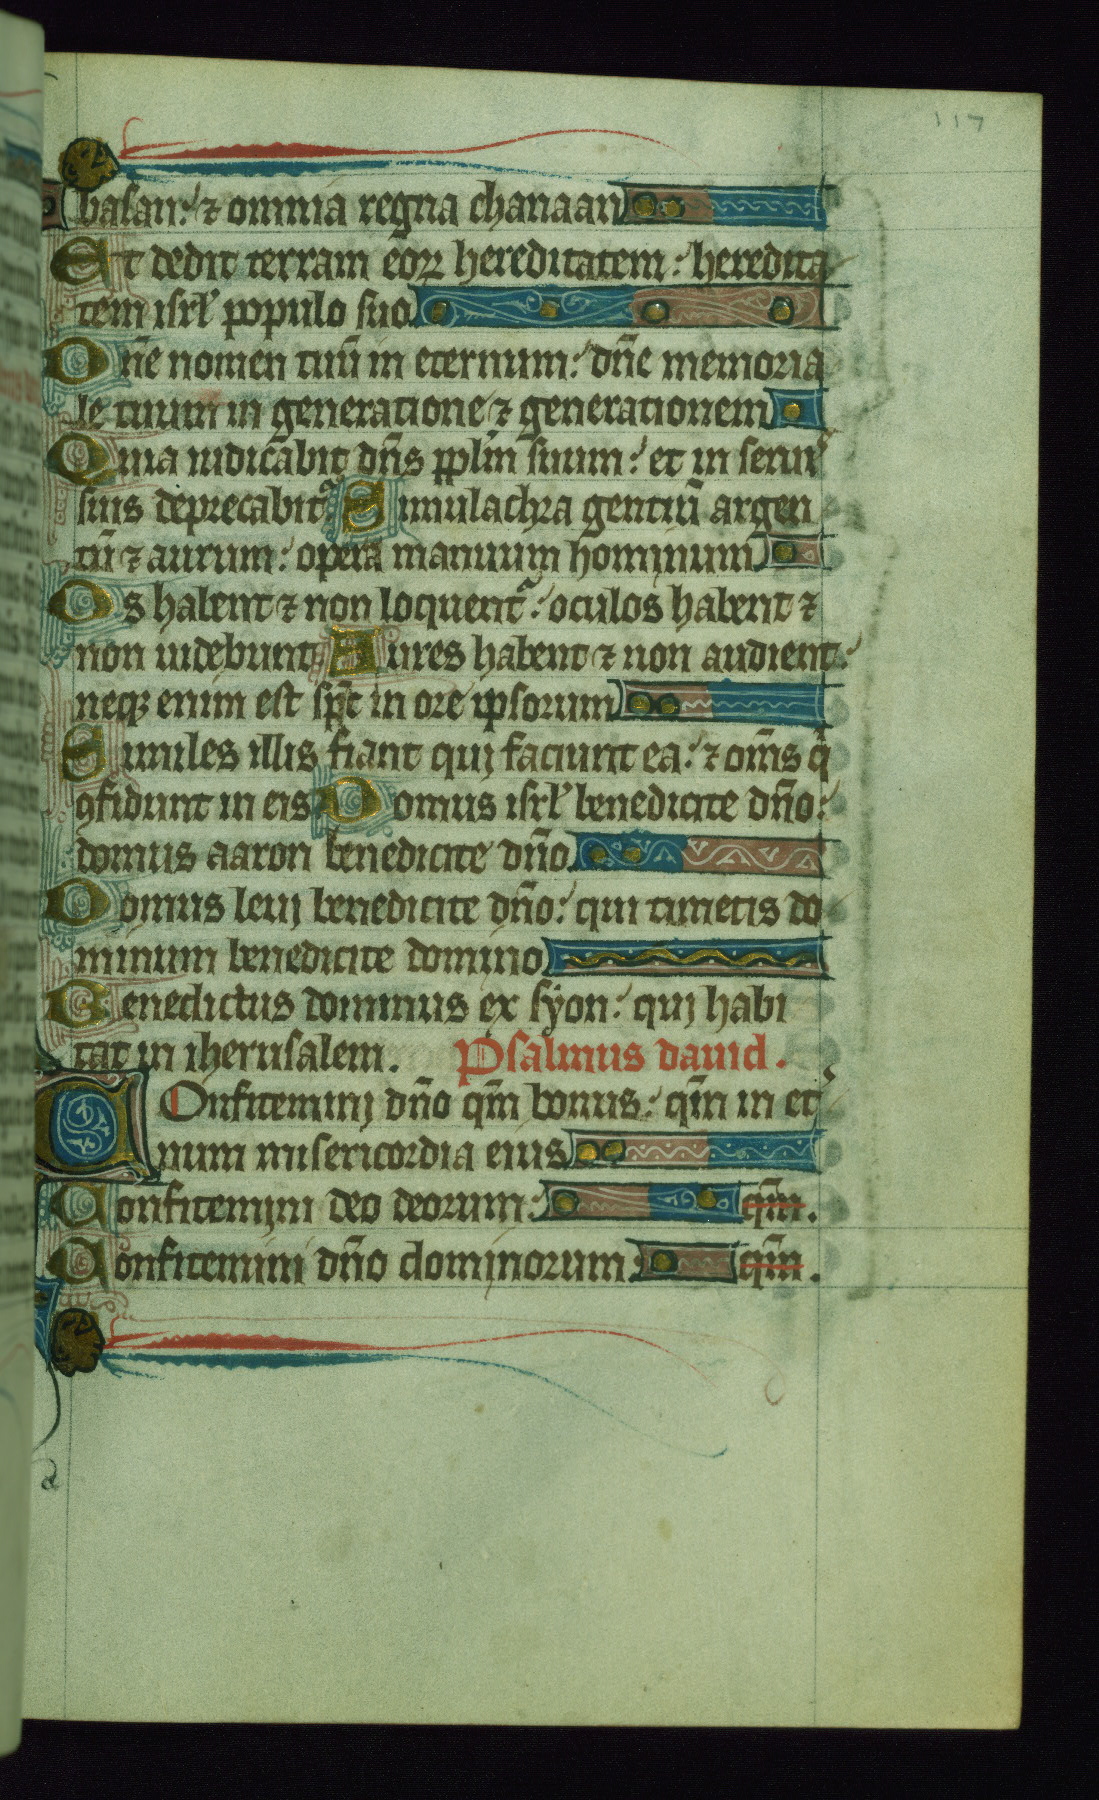 117
basan: ⁊ omnia regna chanaan
Et dedit terram eoꝝ hereditatem: heredita
tem isrl̃ populo suo
Dñe nomen tuũ in eternum: dñe memoria
le tuum in generatione ⁊ generationem
Quia iudicabit dñs pplm̃ suum: et in seruis
suis deprecabit᷑ Simulachra gentiũ argen
tũ ⁊ aurum: opera manuum hominum
Os habent ⁊ non loquent᷑: oculos habent ⁊
non uidebunt Aures habent ⁊ non audient:
neqꝫ enim est sp̃c in ore ipsorum
Similes illis fiant qui faciunt ea: ⁊ om̃s q̇
ꝯfidunt in eis Domus isrl̃ benedicite dño:
domus aaron benedicite dño
Domus leuj benedicite dño: qui timetis do
minum benedicite domino
Benedictus dominus ex syon: quj habi
tat in iherusalem. Psalmus dauid.
COnfiteminj dño qm̃ bonus: qm̃ in et᷑
num misericordia eius
Confitemini deo deorum: qm̃.
Confitemini dño dominorum: qm̃.
a